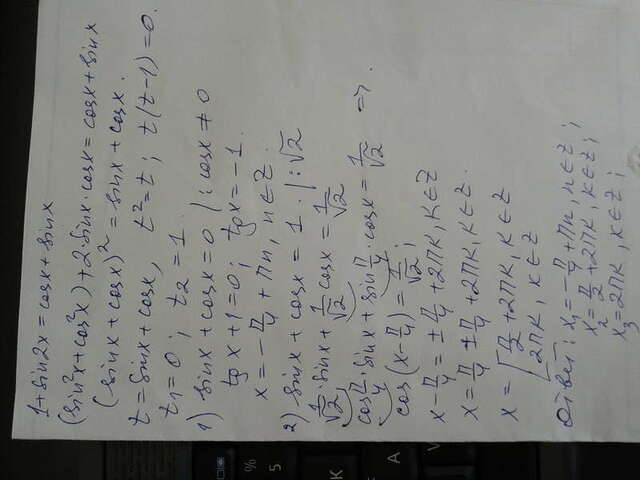 1+sin2x = cosx + sinx
(sin²x+cos²x)+2·sinx·cosx = cosx + sinx
(sinx + cosx)² = sinx + cosx.
t = sinx + cosx, t² = t ; t(t-1) = 0.
t₁ = 0 ; t₂ = 1.
1) sinx + cosx = 0 |: cosx ≠ 0
tgx + 1 = 0 ; tgx = -1.
x = -π/4 + πn, n∈Z.
2) sinx + cosx = 1 |: √2
1/√2 · sinx + 1/√2 cosx = 1/√2
cos π/4 · sinx + sin π/4 · cosx = 1/√2 =>.
cos(x - π/4) = 1/√2 ;
x - π/4 = ± π/4 + 2πk, k∈Z
x = π/4 ± π/4 + 2πk, k∈Z.
x = [ π/2 + 2πk, k∈Z
2πk, k∈Z
Ответ: x₁ = -π/4 + πn, n∈Z ;
x₂ = π/2 + 2πk, k∈Z ;
x₃ = 2πk, k∈Z ;
%
5
K
A
V